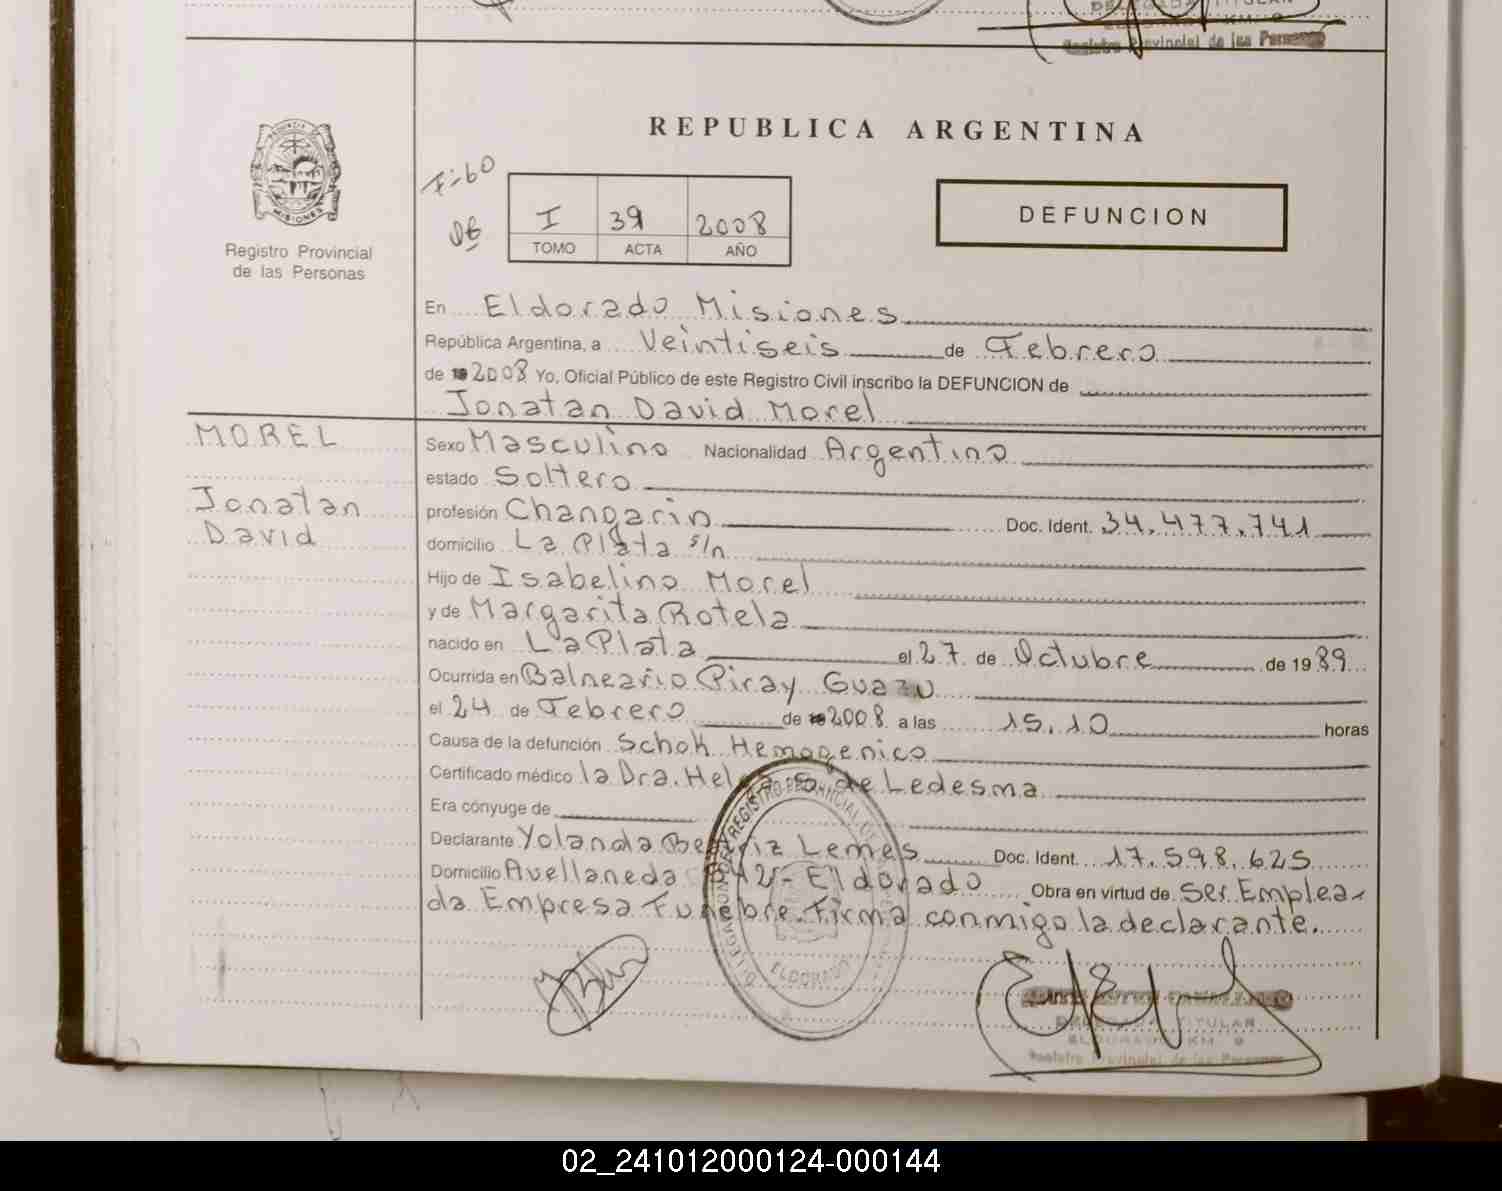 DELEGADA TITULAR
Registro Provincial de las Personas
REPUBLICA ARGENTINA
F-60
I 39 2008
TOMO ACTA AÑO
DEFUNCION
PROVINCIA DE MISIONES
Registro Provincial
de las Personas
En Eldorado Misiones
República Argentina, a Veintiseis de Febrero
de 2008 Yo, Oficial Público de este Registro Civil inscribo la DEFUNCION de
Jonatan David Morel
MOREL
Jonatan
David
Sexo Masculino Nacionalidad Argentino
estado Soltero
profesión Changarin Doc. Ident. 34.477.741
domicilio La Plata s/n
Hijo de Isabelino Morel
y de Margarita Rotela
nacido en La Plata el 27 de Octubre de 1989
Ocurrida en Balneario Piray Guazu
el 24 de Febrero de 2008 a las 15.10 horas
Causa de la defunción Schok Hemogenico
Certificado médico la Dra. S de Ledesma
Era cónyuge de
Declarante Yolanda Beatriz Lemes Doc. Ident. 17.598.625
Domicilio Avellaneda - Eldorado Obra en virtud de Ser Emplea-
da Empresa Funebre. Firma conmigo la declarante.
ELDORADO
DELEGADA TITULAR
ELDORADO KM. 9
Registro Provincial de las Personas
02_241012000124-000144